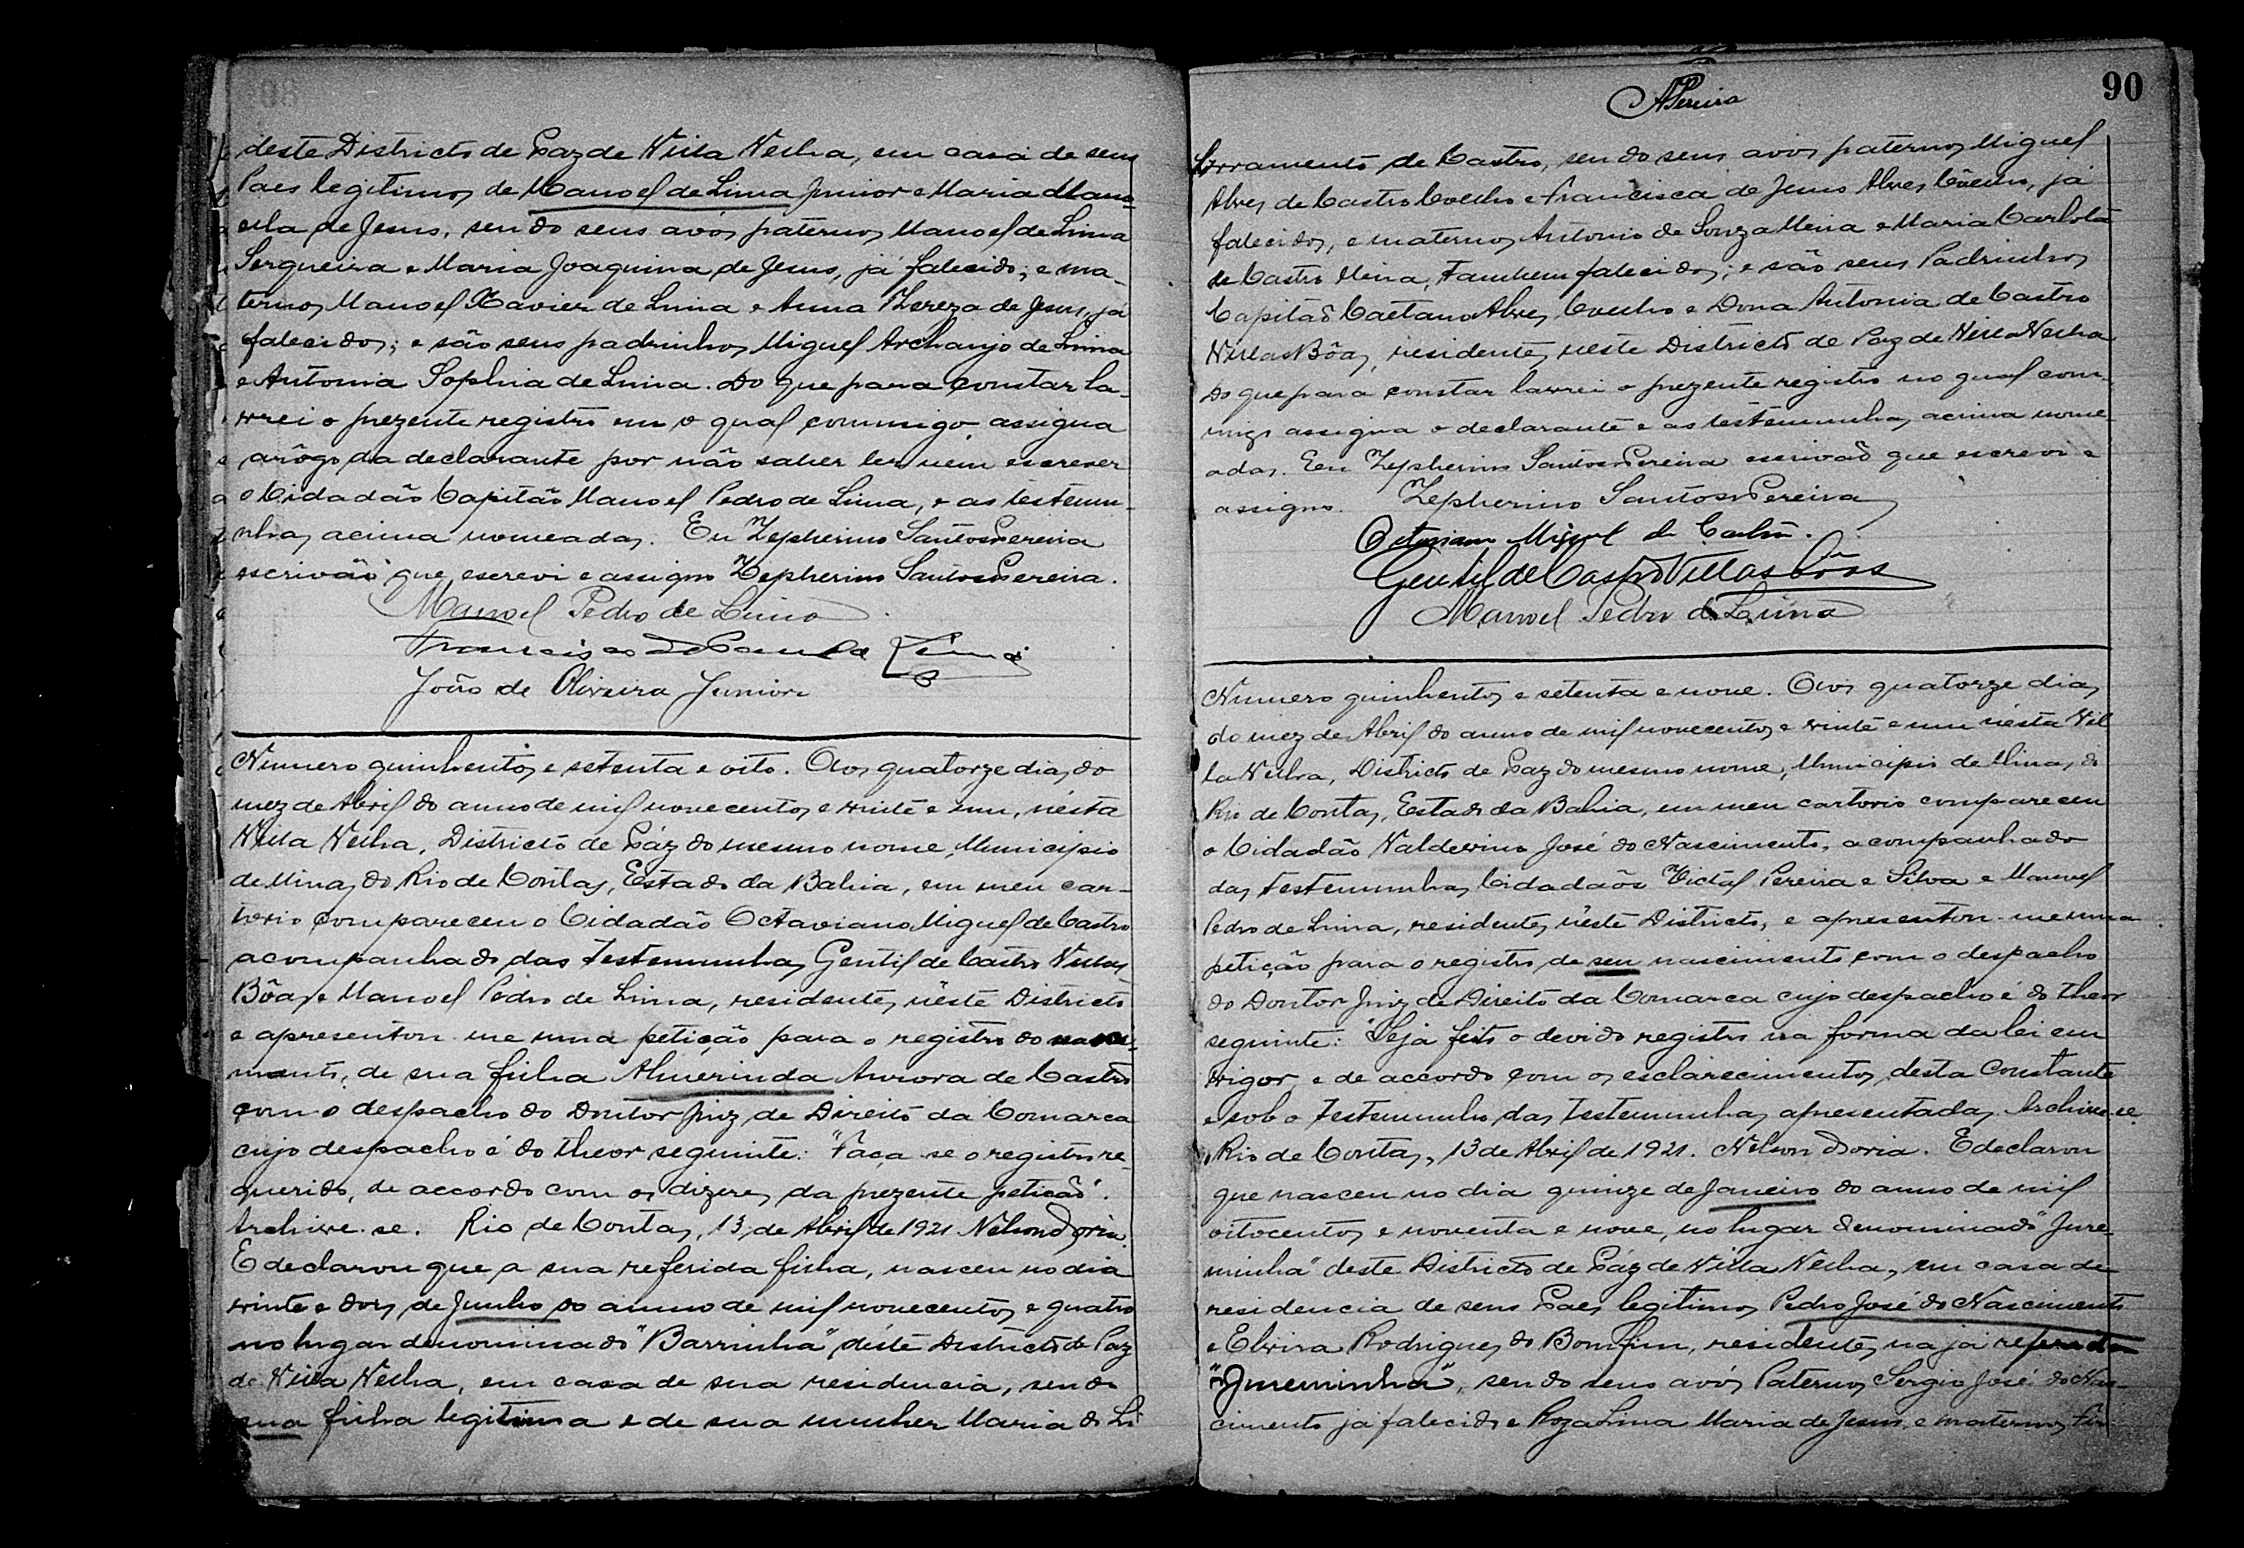 deste Districto de Paz de Villa Velha, em casa de seus
Paes legitimos de Manoel de Lima Junior e Maria Mano-
ela de Jesus, sendo seus avós paternos Manoel de Lima
Serqueira e Maria Joaquina de Jesus, já falecido; e ma-
ternos Manoel Xavier de Lima e Anna Thereza de Jesus, já
falecidos; e são seus padrinhos Miguel Archanjo de Lima
e Antonia Sophia de Lima. Do que para constar la-
vrei o prezente registro em o qual commigo assigna
arôgo da declarante por não saber ler nem escrever
o Cidadão Capitão Manoel Pedro de Lima, e as testemu-
nhas acima nomeadas. Eu Zepherino Santos Pereira
escrivão que escrevi e assigno Zepherino Santos Pereira.
Manoel Pedro de Lima
Francisco de Paula Lima
João de Oliveira Junior
Numero quinhentos e setenta e oito. Aos quatorze dias do
mez de Abril do anno de mil novecentos e vinte e um, nésta
Villa Velha, Districto de Páz do mesmo nome, Municipio
de Minas do Rio de Contas, Estado da Bahia, em meu car-
torio compareceu o Cidadão Octaviano Miguel de Castro
acompanhado das testemunhas Gentil de Castro Villas
Bôas e Manoel Pedro de Lima, residentes nêste Districto
e apresentou-me uma petição para o registro do nasci-
mento, de sua filha Almerinda Aurora de Castro
com o despacho do Doutor Juiz de Direito da Comarca
cujo despacho é do theor seguinte: "Faça-se o registro re-
querido, de accordo com os dizeres da prezente petição".
Archive-se. Rio de Contas, 13 de Abril de 1921 Nelson Doria.
E declarou que a sua referida filha, nasceu no dia
vinte e dois de Junho do anno de mil novecentos e quatro
no lugar denominado "Barrinha" déste Districto de Paz
de Villa Velha, em casa de sua residencia, sendo
sua filha legitima e de sua mulher Maria do Li-
90
APereira
vramento de Castro, sendo seus avós paternos Miguel
Alves de Castro Coelho e Francisca de Jesus Alves Coêlho, já
falecidos, e maternos Antonio de Souza Meira e Maria Carlota
de Castro Meira, tambem falecidos; e são seus Padrinhos
Capitão Caetano Alves Coelho e Dona Antonia de Castro
Villas Bôas, residentes nêste Districto de Paz de Villa Velha
Do que para constar lavrei o prezente registro no qual com-
migo assigna o declarante e as testemunhas acima nome-
adas. Eu Zepherino Santos Pereira escrivaõ que escrevi e
assigno. Zepherino Santos Pereira
Octaviano Miguel de Castro.
Gentil de Castro Villas bôas
Manoel Pedro de Lima
Numero quinhentos e setenta e nove. Aos quatorze dias
do mez de Abril do anno de mil novecentos e vinte e um nésta Vil
la Velha, Districto de Paz do mesmo nome, Municipio de Minas do
Rio de Contas, Estado da Bahia, em meu cartorio compareceu
o Cidadão Valdevino José do Nascimento, acompanhado
das testemunhas Cidadaõs Victal Pereira e Silva e Manoel
Pedro de Lima, residentes nêste Districto, e apresentou-me uma
petição para o registro de seu nascimento com o despacho
do Doutor Juiz de Direito da Comarca cujo despacho é do theor
seguinte: "Seja feito o devido registro na forma da lei em
vigor, e de accordo com os esclarecimentos desta Constante
e sob o testemunho das testemunhas apresentadas. Archive-se.
Rio de Contas, 13 de Abril de 1921. Nelson Doria. E declarou
que nasceu no dia quinze de Janeiro do anno de mil
oitocentos e noventa e nove, no lugar denominado "Jure-
minha" deste Districto de Páz de Villa Velha, em casa de
residencia de seus Paes legitimos Pedro José do Nascimento
e Elvira Rodrigues do Bomfim, residentes na já referida
"Jureminha", sendo seus avós Paternos Sergio José do Nas-
cimento já falecido e Roza Lina Maria de Jesus, e maternos